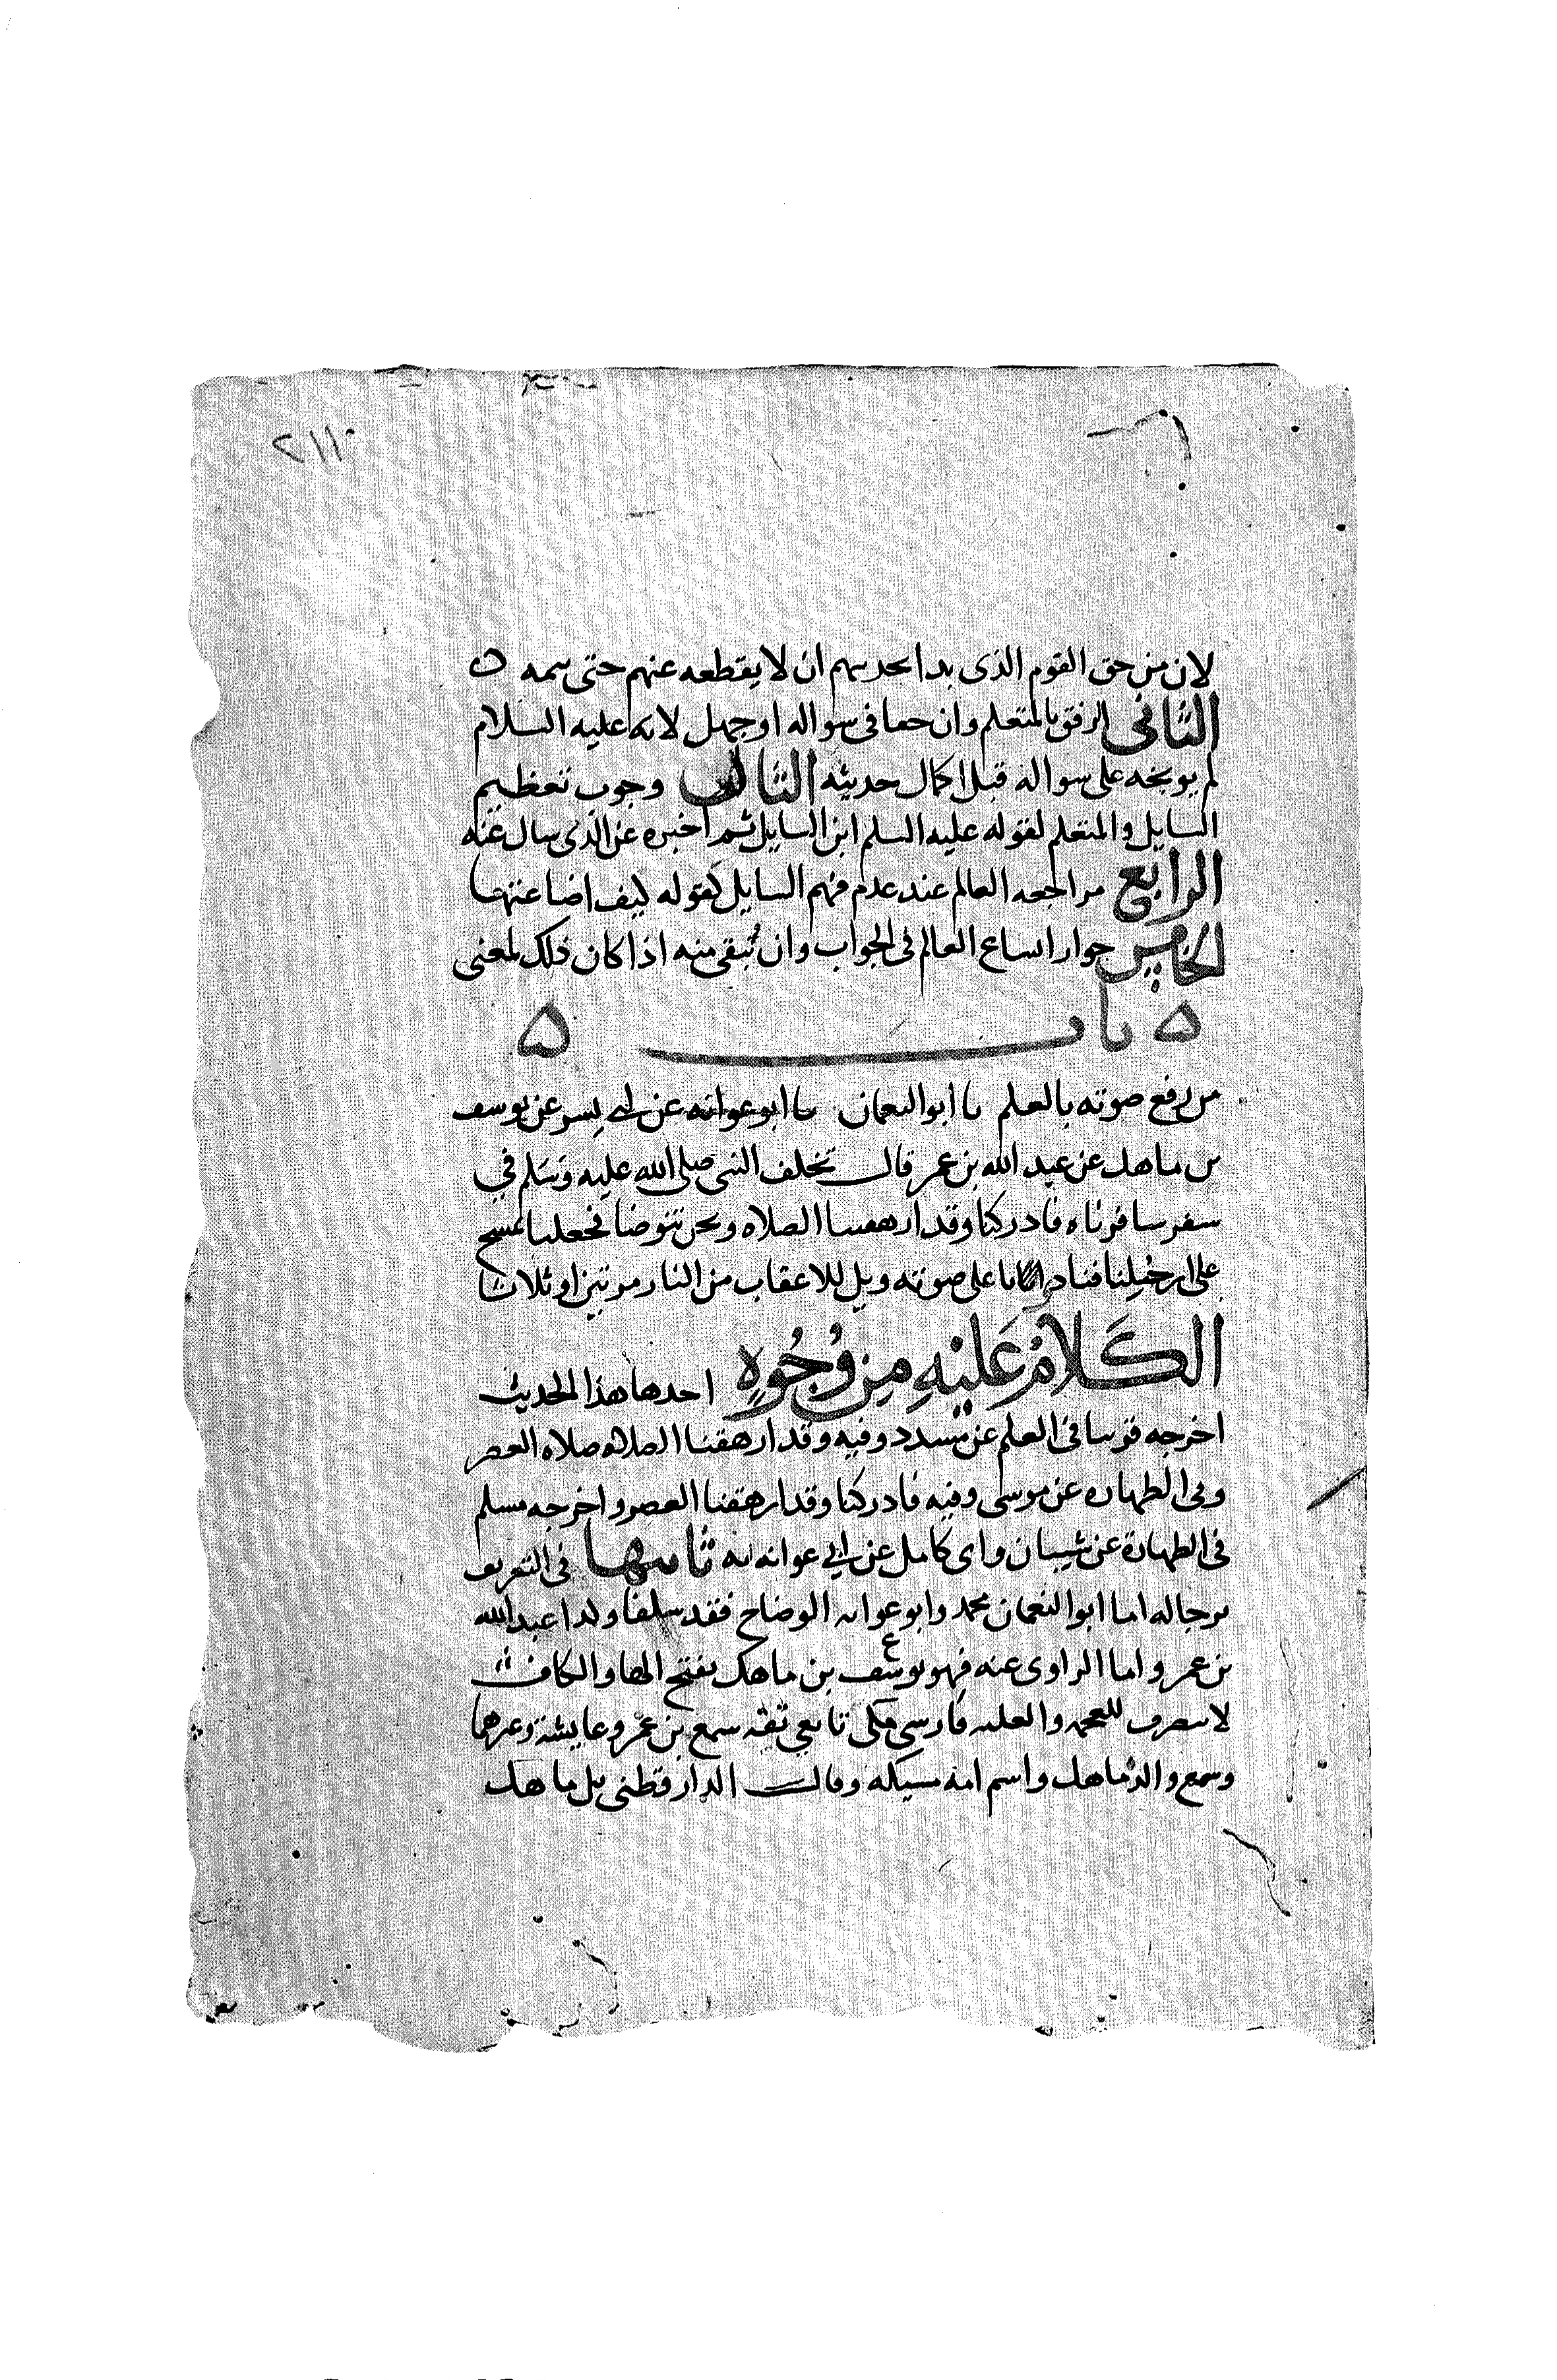 ٢١١
لان من حق القوم الذى بدا بحديثهم ان لا يقطعه عنهم حتى يتمه ه
الثانى الرفق بالمتعلم وان جفا فى سواله او جهل لانه عليه السلام
لم يوبخه على سواله قبل اكمال حديثه الثالث وجوب تعظيم
السايل والمتعلم لقوله عليه السلم اين السايل ثم اخبره عن الذى سال عنه
الرابع مراجعه العالم عند عدم فهم السايل كقوله كيف اضاعتها
الخامس جواز اتساع العالم فى الجواب وان يبقى منه اذا كان ذلك لمعنى
ه باب ه
من رفع صوته بالعلم نا ابو النعمان نا ابو عوانه عن ابى بشر عن يوسف
بن ماهك عن عبد الله بن عمر قال تخلف النبى صلى الله عليه وسلم في
سفر سافرناه فادركنا وقد ارهقتنا الصلاه ونحن نتوضا فجعلنا نمسح
على ارجلنا فنادى باعلى صوته ويل للاعقاب من النار مرتين او ثلاثا
الكَلَامُ عَلَيْهِ مِن وُجُوهٍ احدها هذا الحديث
اخرجه قريبا فى العلم عن مسدد وفيه وقد ارهقتنا الصلاه صلاه العصر
وفى الطهاره عن موسى وفيه فادركنا وقد ارهقنا العصر واخرجه مسلم
فى الطهارة عن شيبان وابى كامل عن ابي عوانه به ثانيها فى التعريف
برجاله اما ابو النعمان محمد وابو عوانه الوضاح فقد سلفا وكذا عبد الله
بن عمر واما الراوى عنه فهو يوسف بن ماهك بفتح الها والكاف
لا ينصرف للعجمه والعلميه فارسى مكى تابعي ثقة سمع بن عمر وعايشة وغيرهما
وسمع والده ماهك واسم امه مسيكه وقال الدارقطنى بل ماهك